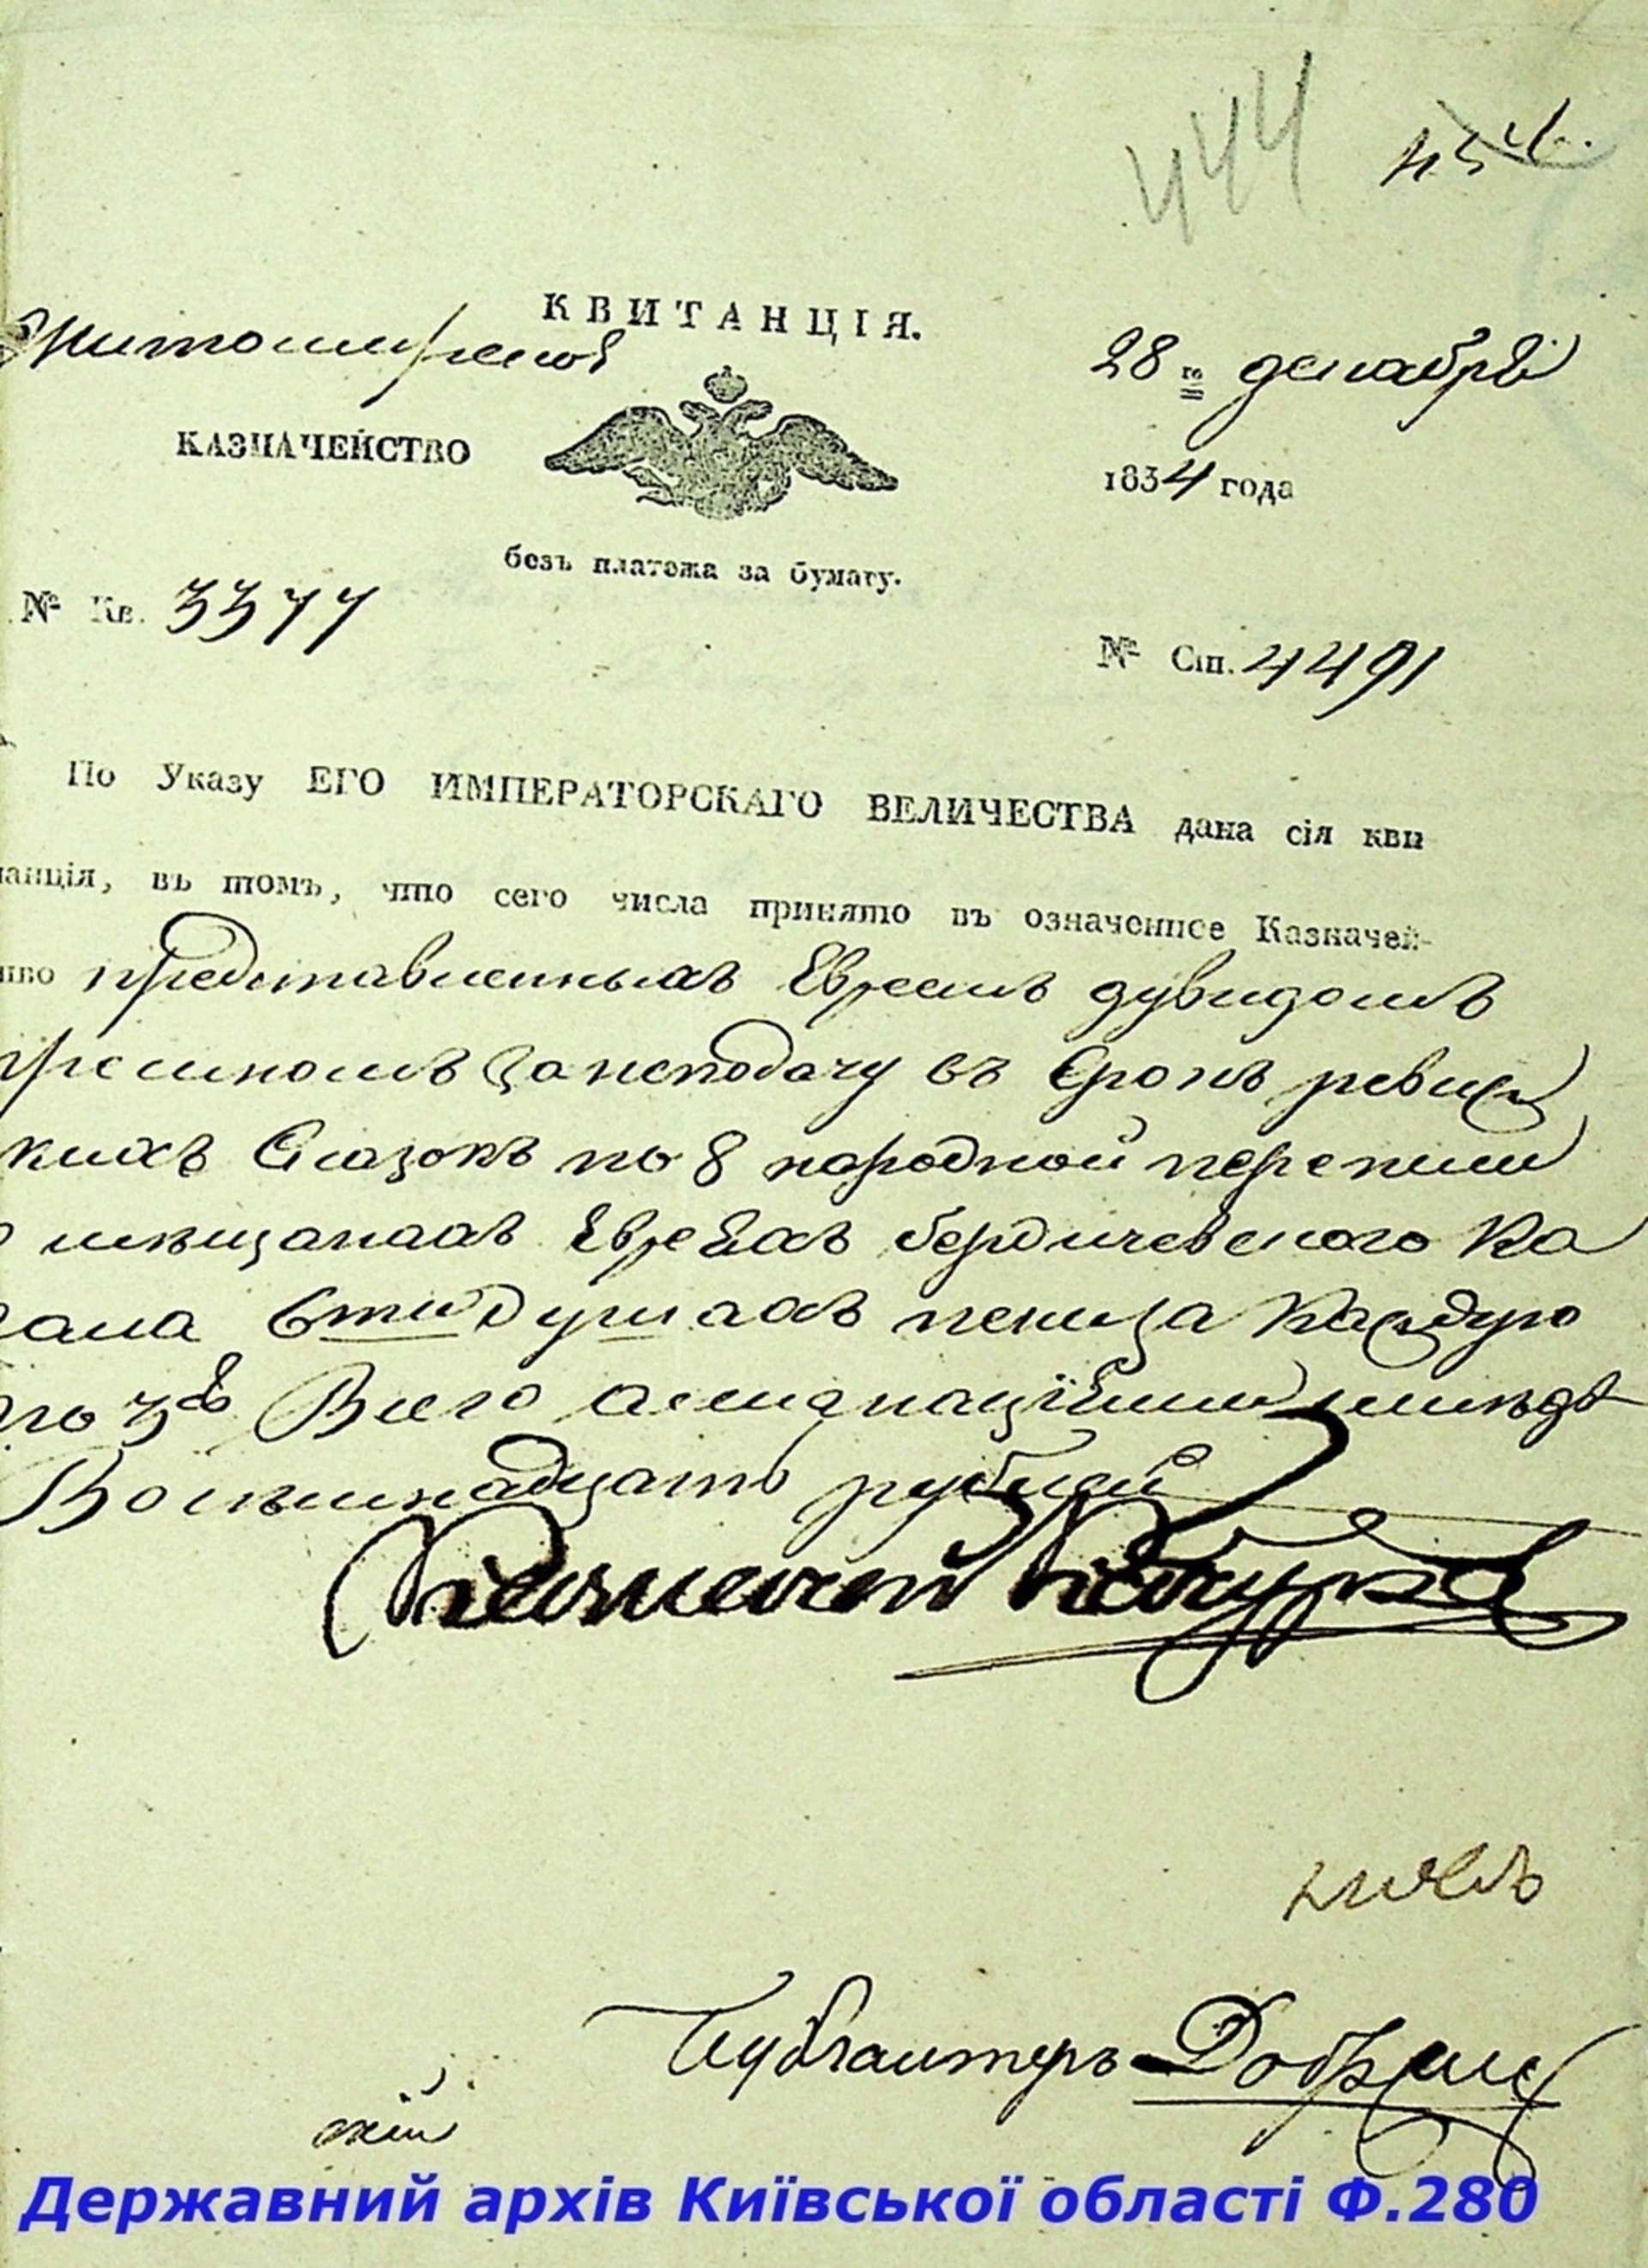 444
454.
КВИТАНЦІЯ.
Житомирское
28го декабря
КАЗНАЧЕЙСТВО
1834 года
безъ платежа за бумагу.
№ Кв. 3377
№ Сп. 4491
По Указу ЕГО ИМПЕРАТОРСКАГО ВЕЛИЧЕСТВА дана сія кви
танція, въ томъ, что сего числа принято въ означенное Казначей-
ство представленныхъ Евреемъ дувидомъ
за неподачу въ Срокъ ревиз
кихъ Сказокъ по 8 народной переписи
о мѣщанахъ Евреяхъ бердичевского Ка
гала 6ти душахъ пени за каждую
по 3 Всего ассигнаціями мѣдѣ
Восемьнадцать рублей
Казначей
Бухгалтеръ
кій
Державний архів Київської області Ф.280